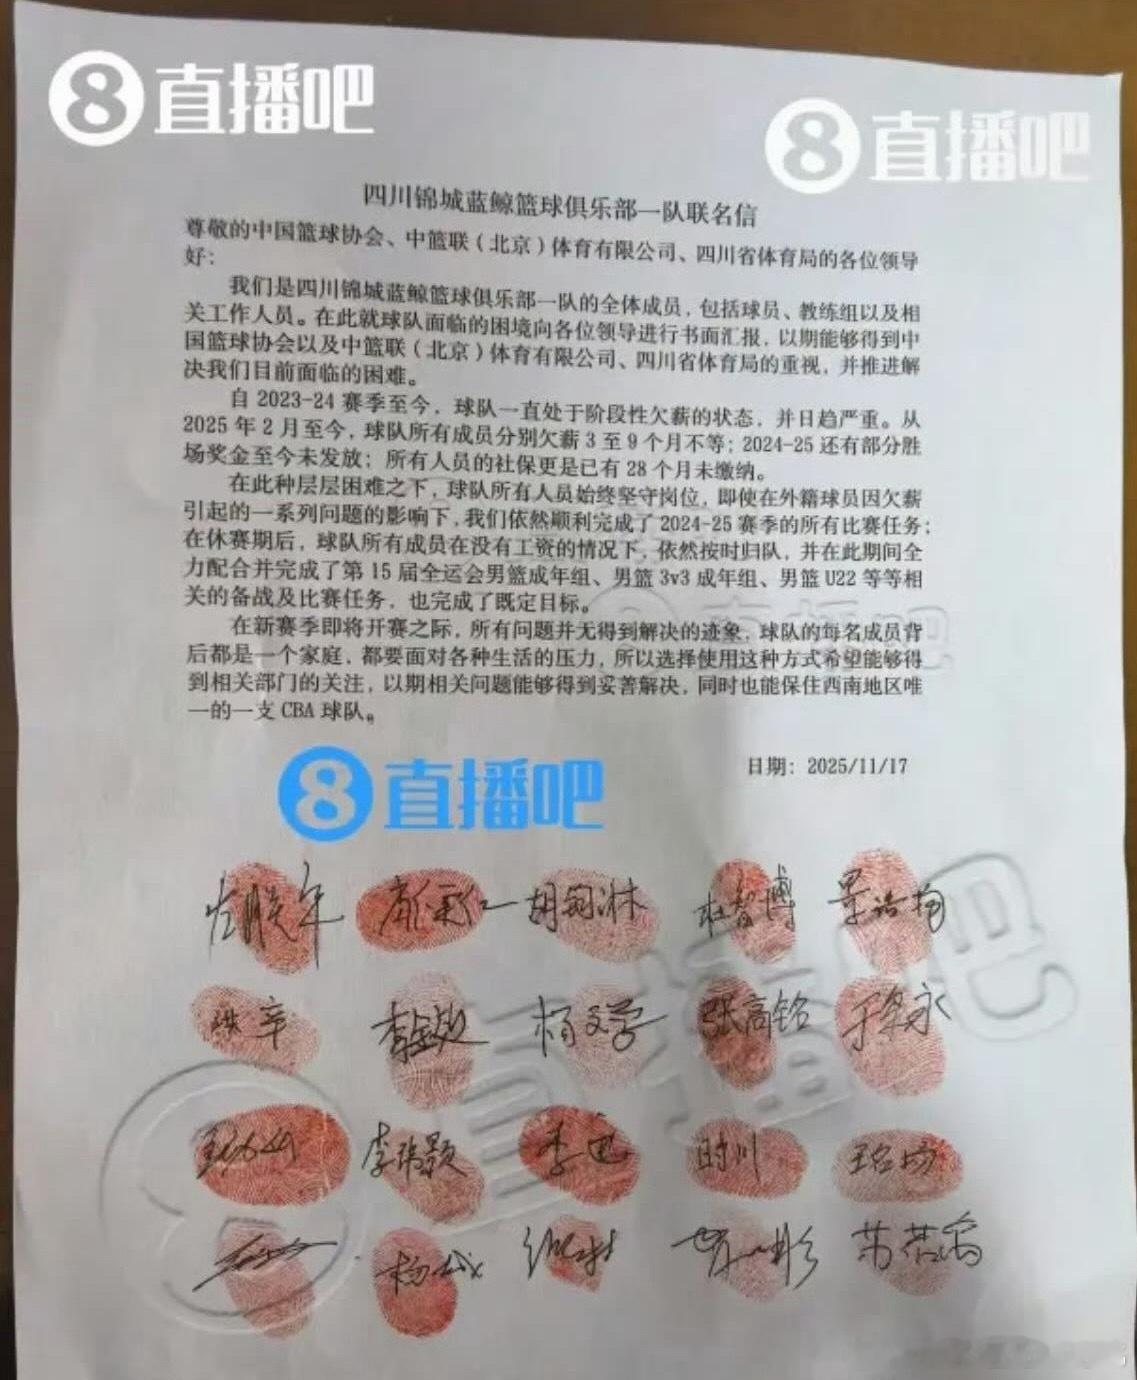 8直播吧
8直播吧
四川锦城蓝鲸篮球俱乐部一队联名信
尊敬的中国篮球协会、中篮联（北京）体育有限公司、四川省体育局的各位领导
好：
我们是四川锦城蓝鲸篮球俱乐部一队的全体成员，包括球员、教练组以及相
关工作人员。在此就球队面临的困境向各位领导进行书面汇报，以期能够得到中
国篮球协会以及中篮联（北京）体育有限公司、四川省体育局的重视，并推进解
决我们目前面临的困难。
自 2023-24 赛季至今，球队一直处于阶段性欠薪的状态，并日趋严重。从
2025 年 2 月至今，球队所有成员分别欠薪 3 至 9 个月不等；2024-25 还有部分胜
场奖金至今未发放；所有人员的社保更是已有 28 个月未缴纳。
在此种层层困难之下，球队所有人员始终坚守岗位，即使在外籍球员因欠薪
引起的一系列问题的影响下，我们依然顺利完成了 2024-25 赛季的所有比赛任务；
在休赛期后，球队所有成员在没有工资的情况下，依然按时归队，并在此期间全
力配合并完成了第 15 届全运会男篮成年组、男篮 3v3 成年组、男篮 U22 等等相
关的备战及比赛任务，也完成了既定目标。
在新赛季即将开赛之际，所有问题并无得到解决的迹象，球队的每名成员背
后都是一个家庭，都要面对各种生活的压力，所以选择使用这种方式希望能够得
到相关部门的关注，以期相关问题能够得到妥善解决，同时也能保住西南地区唯
一的一支 CBA 球队。
8直播吧
日期：2025/11/17
杜智博 景浩扬
杨文学 张高铭
李玮颢 时川
苏若禹
8直播吧
直播吧